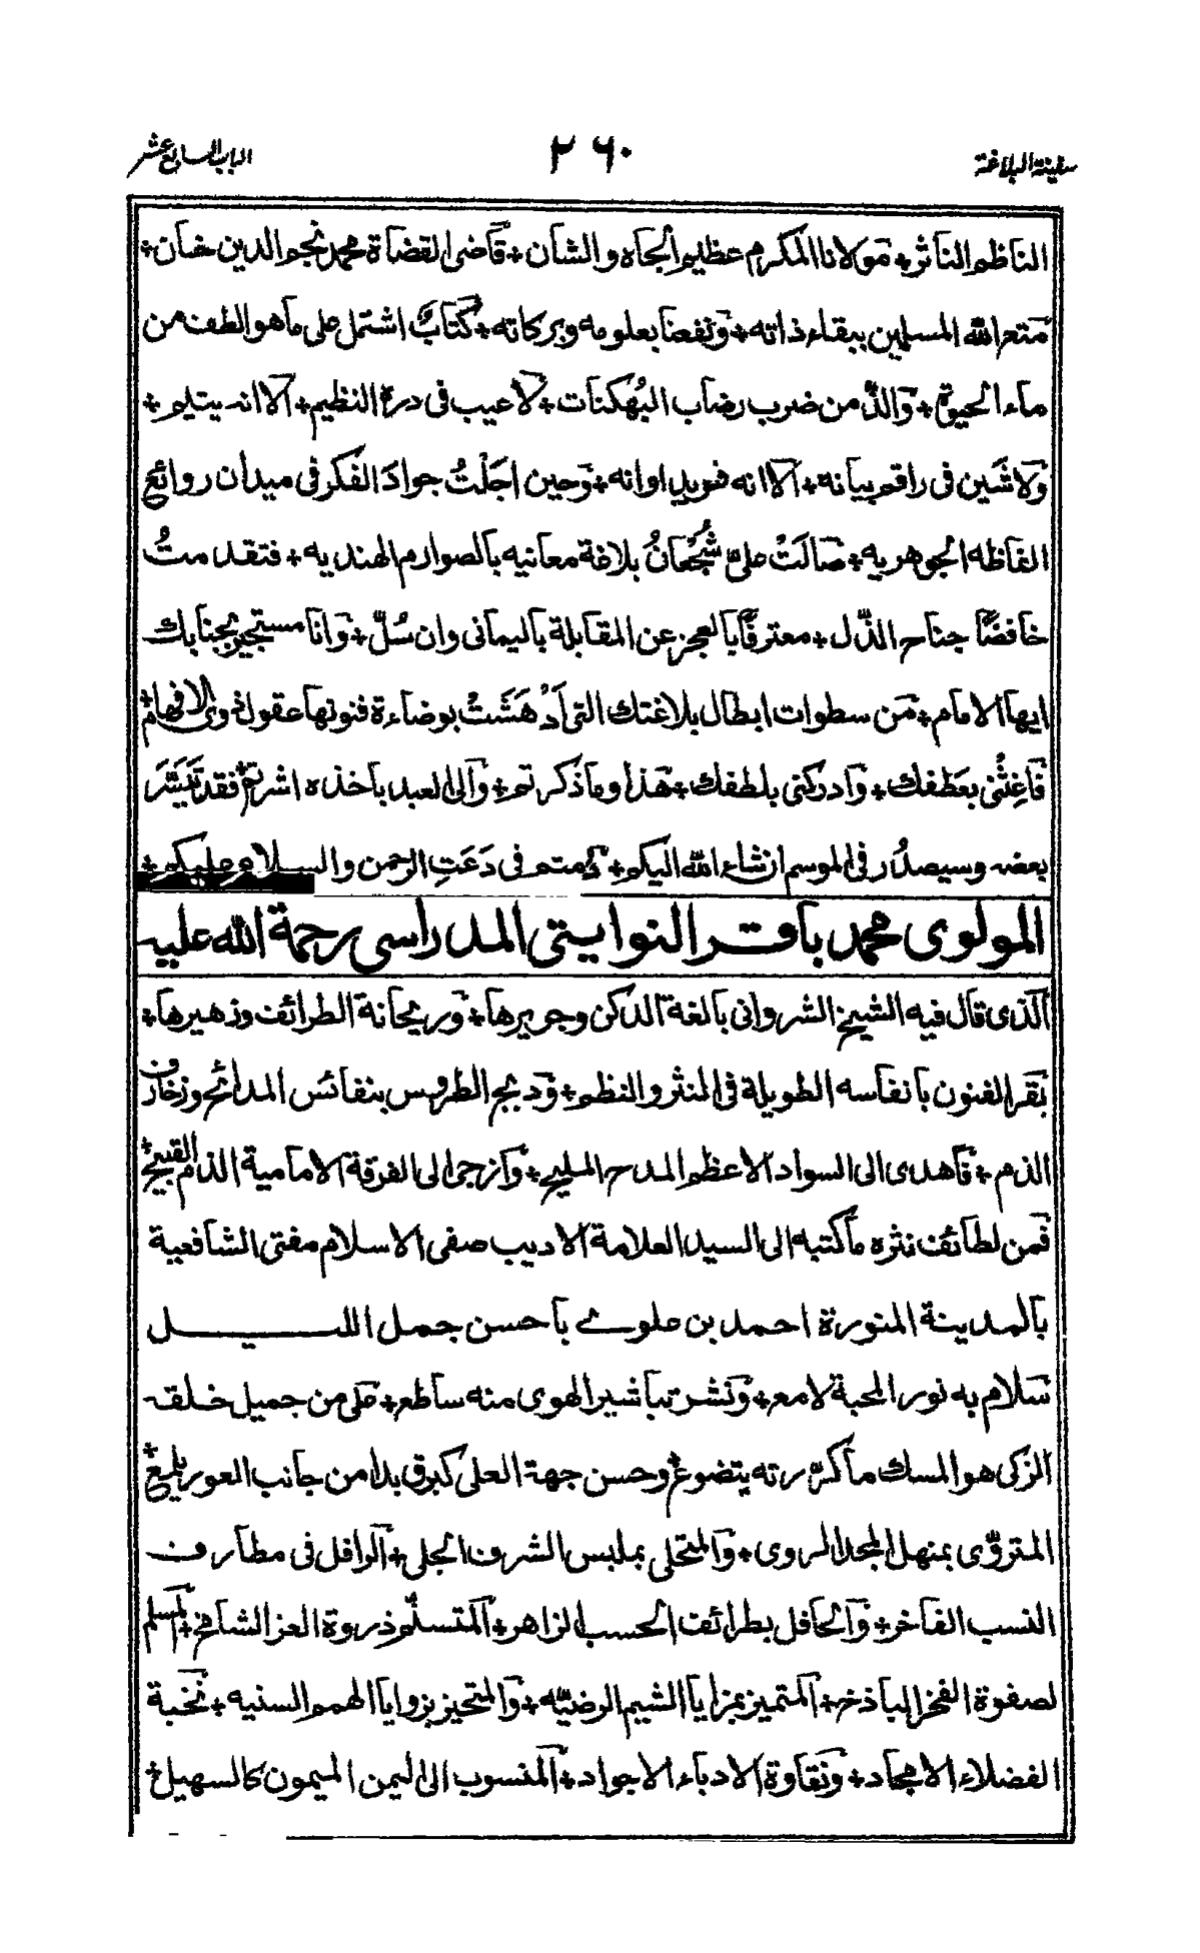 سفينة البلاغة
٢٦٠
الباب السابع عشر
الناظم الناثر + مولانا المكرم عظيم الجاه والشان + قاضى القضاة محمد نجم الدين خان +
متع الله المسلمين ببقاء ذاته + ونفعنا بعلومه وبركاته + كتابٌ اشتمل على ما هو الطف من
ماء الحيوة + والذّ من ضرب رضاب البُهكنات + لا عيب فى درة النظيم + الا انه يتيم +
ولا شين فى راقم بيانه + الا انه فريد اوانه + وحين اجَلْتُ جوادَ الفكر فى ميدان روائع
الفاظه الجوهريه + صالَتْ علىّ شُجْعانُ بلاغة معانيه بالصوارم الهنديه + فتقدمتُ
خافضًا جناح الذّل + معترفًا بالعجز عن المقابلة باليمانى وان سُلّ + وانا مستجير بجنابك
ايها الامام + من سطوات ابطال بلاغتك التى اَدْهَشَتْ بوضاءة فنونها عقول ذوى الافهام +
فاغِثْنى بعَطفك + وادركنى بلطفك + هذا وما ذكرتم + والى العبد باخذه اشرتم + فقد تَيَسَّرَ
بعضه وسيصدُر فى الموسم ان شاء الله اليكم + دمتم فى دَعَتِ الرحمن والسلام عليكم +
المولوى محمد باقر النوايتى المدراسى رحمة الله عليه
الذى قال فيه الشيخ الشروانى بالغة الدكن وجريرها + وريحانة الطرائف وزهيرها +
بَقَر الفنون بانفاسه الطويلة فى المنثر والنظم + ودبج الطروس بنفائس المدائح وزخارف
الذم + فاهدى الى السواد الاعظم المدح المليح + وازجى الى الفرقة الامامية الذام القبيح +
فمن لطائف نثره ما كتبه الى السيد العلامة الاديب صفى الاسلام مفتى الشافعية
بالمدينة المنورة احمد بن علوى با حسن جمل الليل
سلام به نور المحبة لامع + ونشر تباشير الهوى منه ساطع + على من جميل خلقه
الزكى هو المسك ما كرّرته يتضوع + وحسن جهة العلى كبرق بدا من جانب الغور يلمع +
المتروّى بمنهل المجد الروى + والمتحلى بملبس الشرف الجلى + الرافل فى مطارف
النسب الفاخر + والحافل بطرائف الحسب الزاهر + المتسنّم ذروة العز الشامخ + المسلم
لصفوة الفخر الباذخ + المتميز بمزايا الشيم الرضيّه + والمتحيز بزوايا الهمم السنيه + نخبة
الفضلاء الامجاد + ونقاوة الادباء الاجواد + المنسوب الى اليمن الميمون كالسهيل +